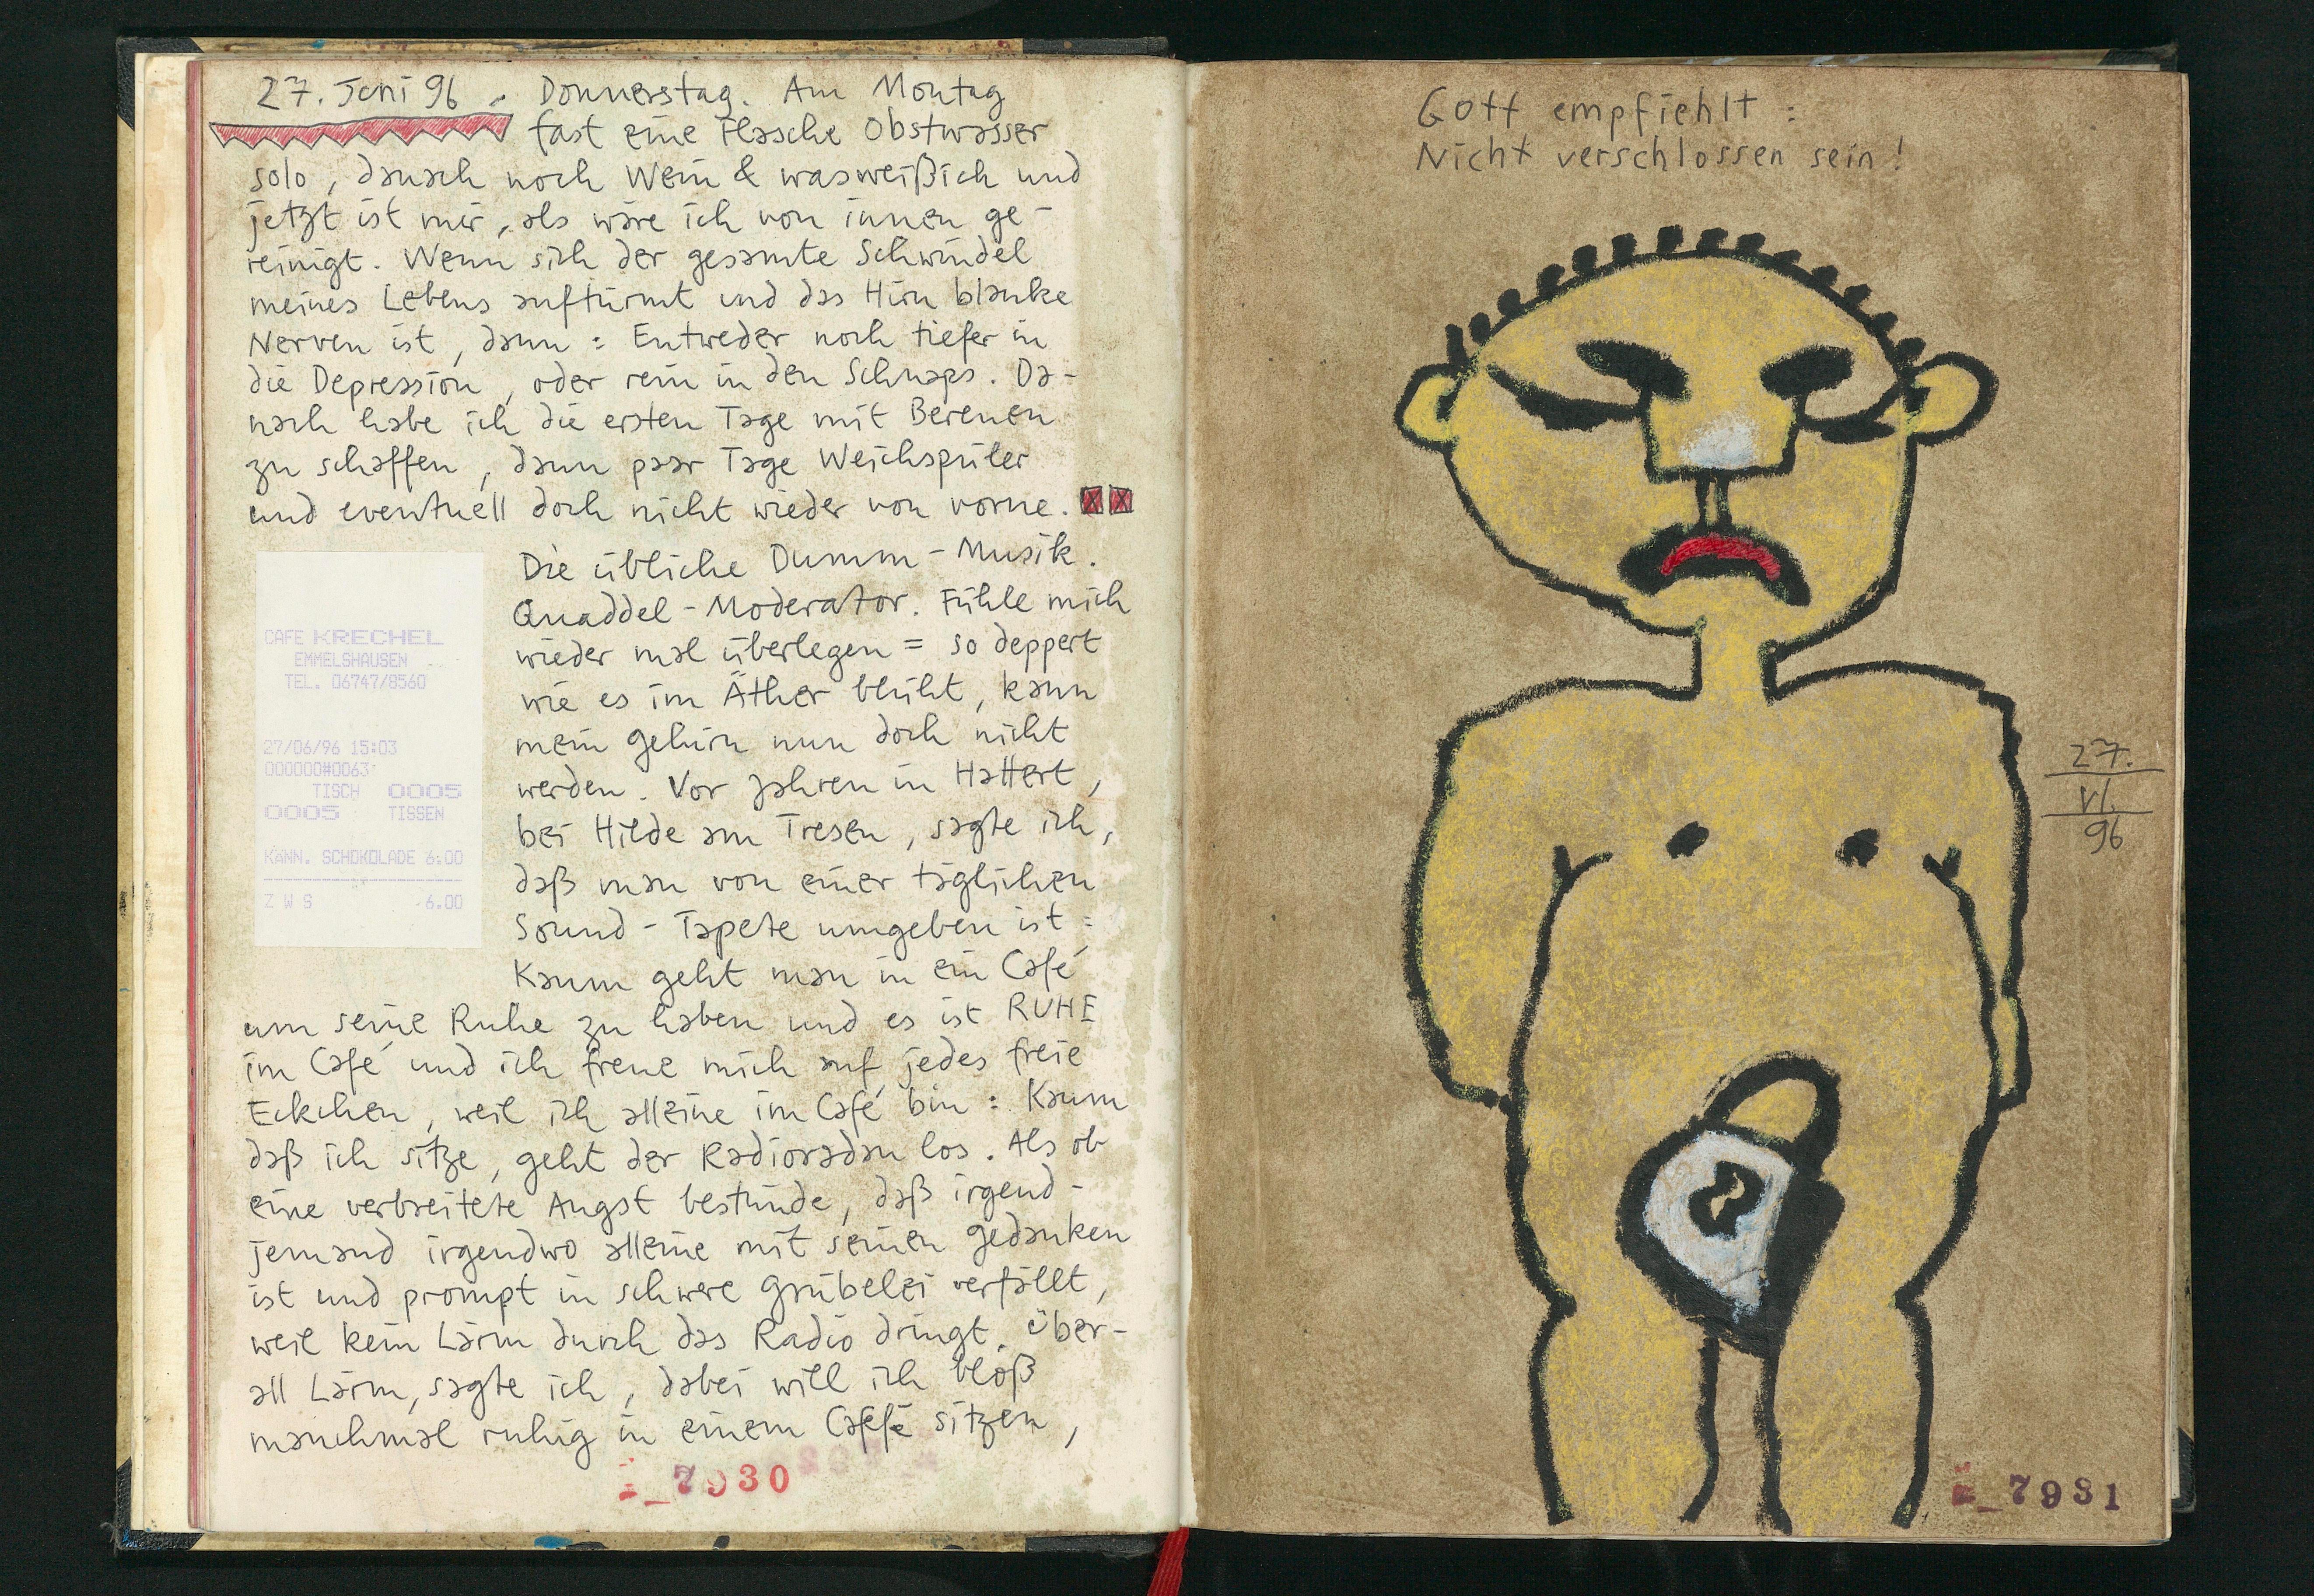 27. Juni 96. Donnerstag. Am Montag
fast eine Flasche Obstwasser
solo, danach noch Wein & wasweißich und
jetzt ist mir, als wäre ich von innen ge-
reinigt. Wenn sich der gesamte Schwindel
meines Lebens auftürmt und das Hirn blanke
Nerven ist, dann: Entweder noch tiefer in
die Depression, oder rein in den Schnaps. Da-
nach habe ich die ersten Tage mit Bereuen
zu schaffen, dann paar Tage Weichspüler
und eventuell doch nicht wieder von vorne.
Die übliche Dumm-Musik.
Quaddel-Moderator. Fühle mich
wieder mal überlegen = so deppert
wie es im Äther blüht, kann
mein Gehirn nun doch nicht
werden. Vor Jahren in Hattert,
bei Hilde am Tresen, sagte ich,
daß man von einer täglichen
Sound-Tapete umgeben ist:
Kaum geht man in ein Café
um seine Ruhe zu haben und es ist RUHE
im Café und ich freue mich auf jedes freie
Eckchen, weil ich alleine im Café bin: Kaum
daß ich sitze, geht der Radioradau los. Als ob
eine verbreitete Angst bestünde, daß irgend-
jemand irgendwo alleine mit seinen Gedanken
ist und prompt in schwere Grübelei verfällt,
weil kein Lärm durch das Radio dringt. Über-
all Lärm, sagte ich, dabei will ich bloß
manchmal ruhig in einem Caffé sitzen,
CAFE KRECHEL
EMMELSHAUSEN
TEL. 06747/8560
27/06/96 15:03
000000#0063
TISCH 0005
0005 TISSEN
KÄNN. SCHOKOLADE 6.00
Z W S 6.00
_7930
Gott empfiehlt:
Nicht verschlossen sein!
27.
VI.
96
_7931